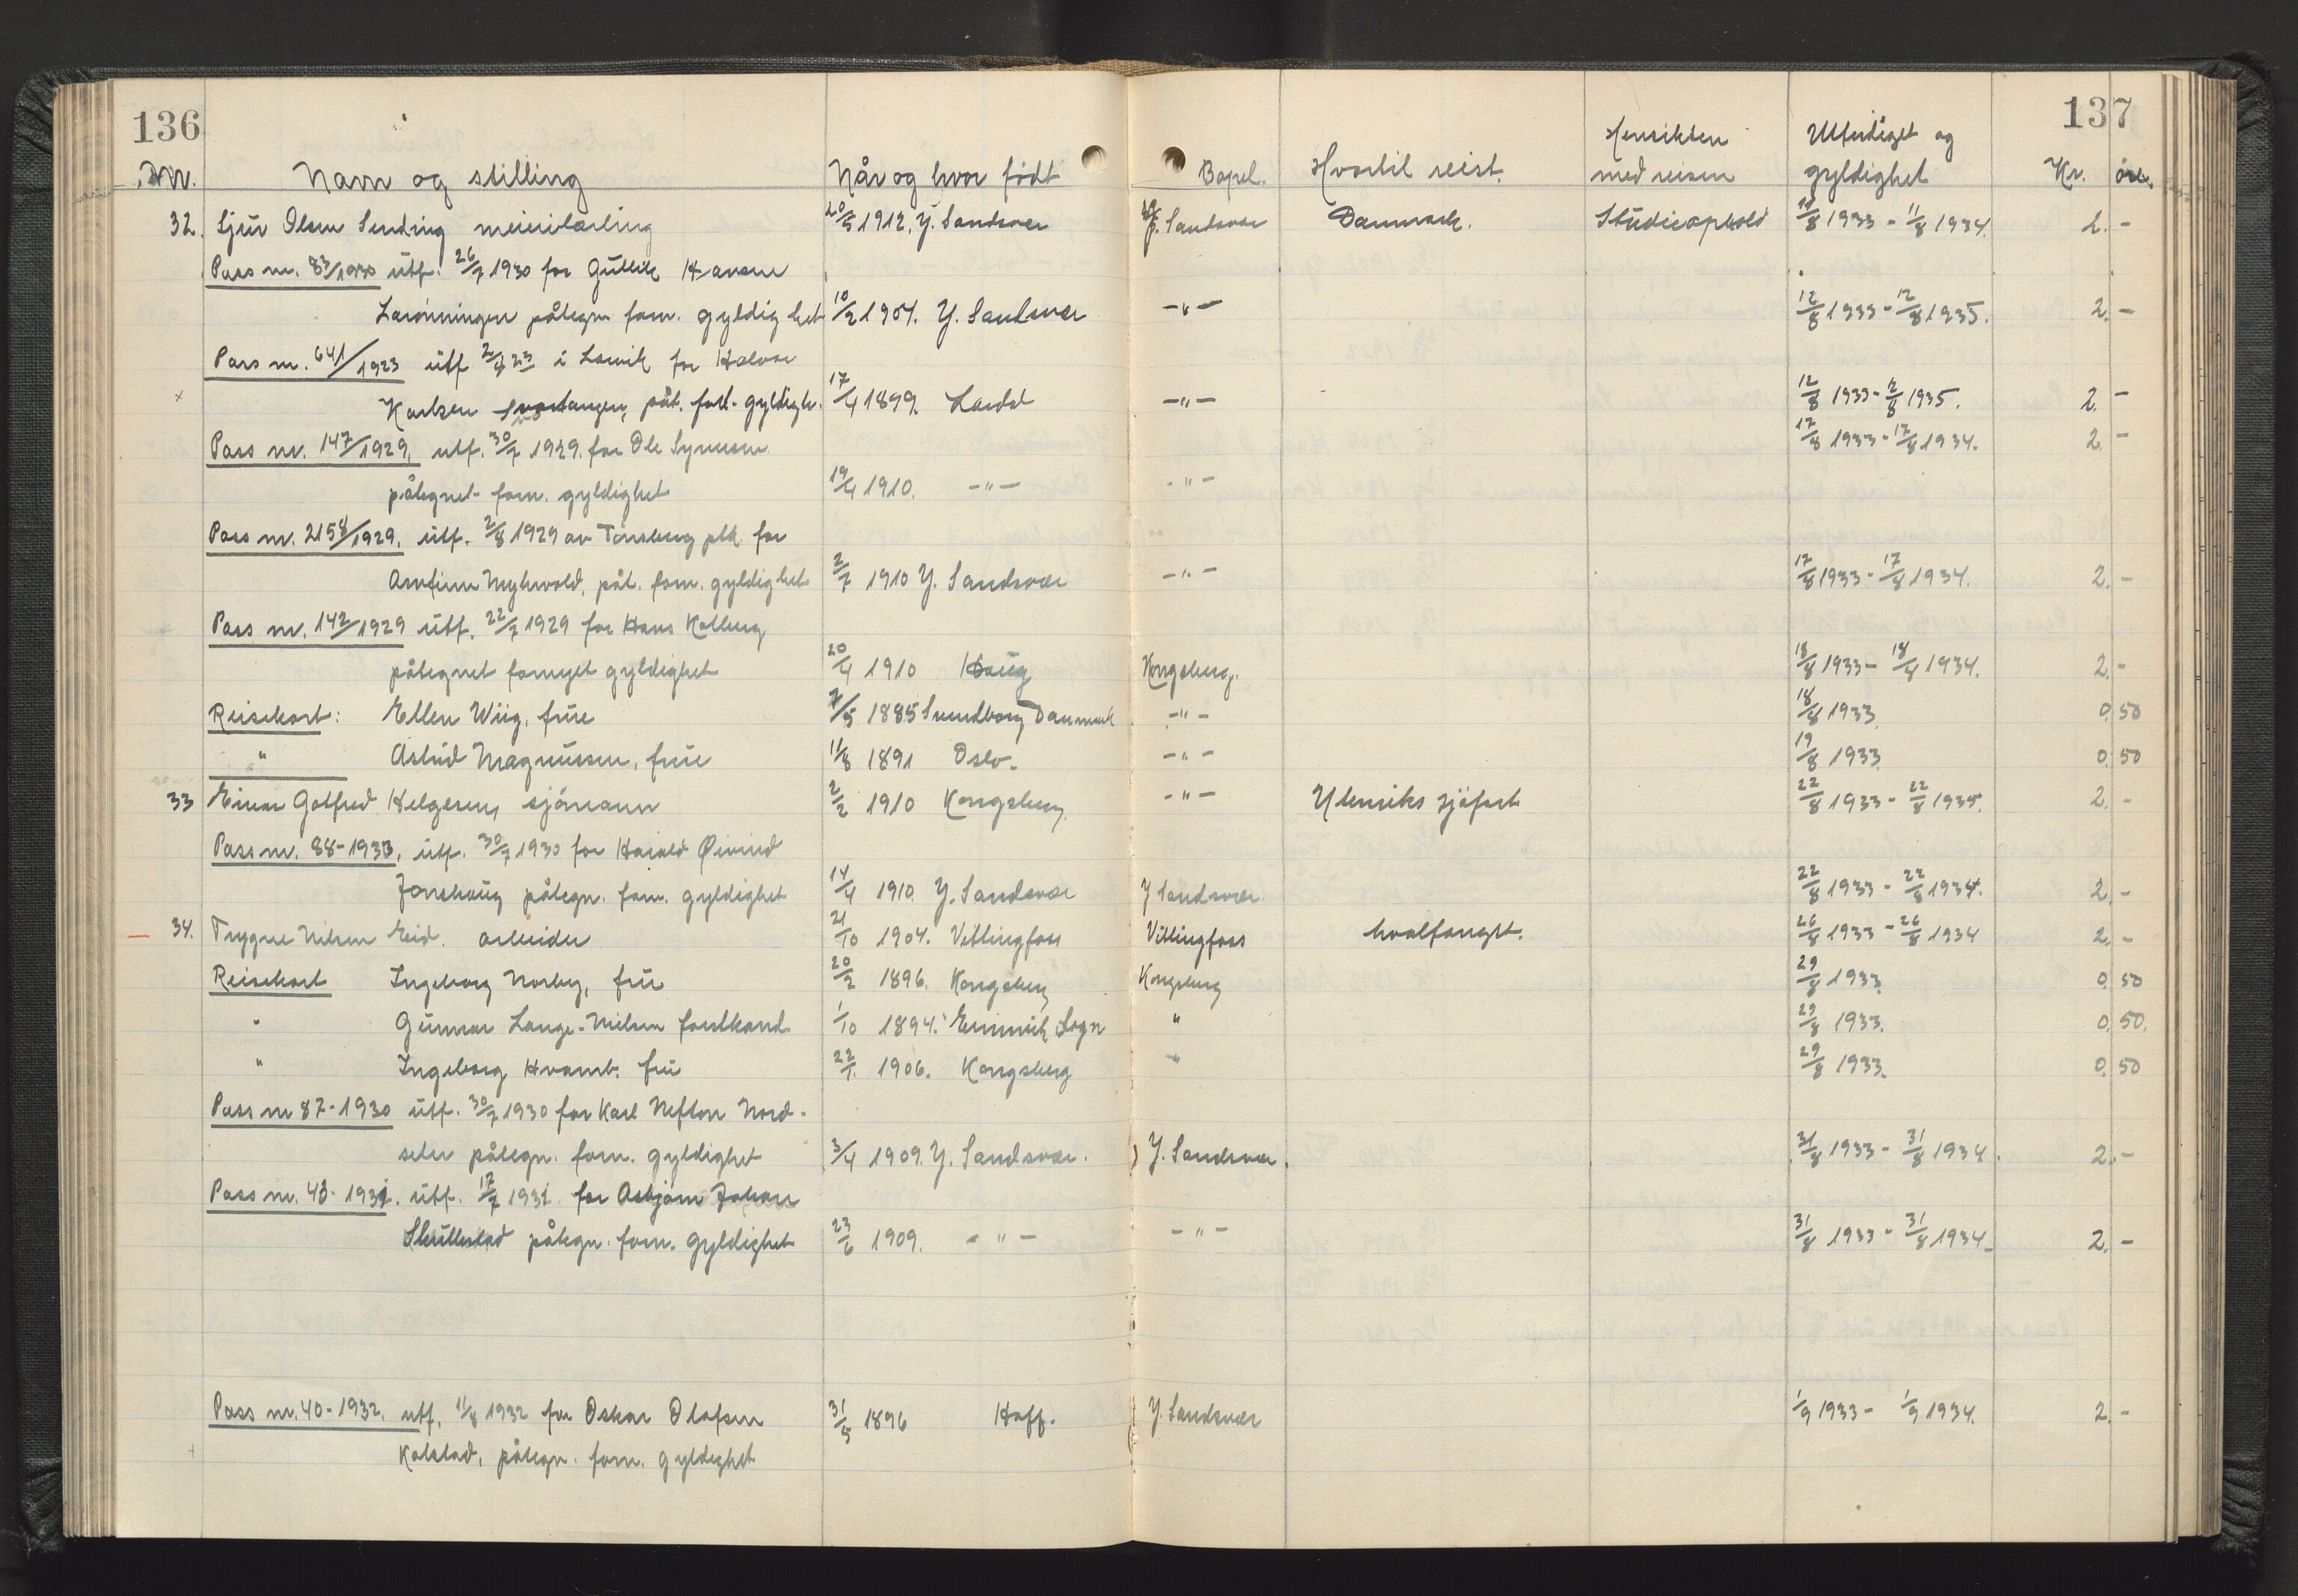 136
137
Nr. Navn og stilling Når og hvor født Bopel. Hvortil reist. Hensikten med reisen Utferdiget og gyldighet Kr. öre.
32. Sjur Olsen Sending meierilærling 20/5 1912, Y. Sandsvær Y. Sandsvær Danmark. Studieophold 11/8 1933 - 11/8 1934. 2. -
Pass nr. 83/1930 utf. 26/7 1930 for Gullik Hansen
Larönningen påtegn forn. gyldighet 10/2 1907. Y. Sandsvær -"- 12/8 1933 - 12/8 1935. 2. -
Pass nr. 641/1923 utf 2/8 23 i Larvik for Halvor
Karlsen påt. forn. gyldigh. 17/4 1899. Lardal -"- 12/8 1933 - 12/8 1935. 2. -
Pass nr. 147/1929, utf. 30/7 1929. for Ole Syvertsen 17/8 1933 - 17/8 1934. 2. -
påtegnet forn. gyldighet 19/4 1910. -"- -"-
Pass nr. 2158/1929. utf. 2/8 1929 av Tönsberg plk. for
Arnfinn Myhrvold, påt. forn. gyldighet 2/7 1910 Y. Sandsvær -"- 17/8 1933 - 17/8 1934. 2. -
Pass nr. 142/1929 utf. 22/7 1929 for Hans Kolberg
påtegnet fornyet gyldighet 20/4 1910 Haug Kongsberg. 18/8 1933 - 18/8 1934. 2. -
Reisekort: Ellen Wiig, frue 7/5 1885 Svendborg Danmark -"- 18/8 1933. 0. 50
" Astrid Magnussen, frue 11/8 1891 Oslo. -"- 19/8 1933. 0. 50
33 Einar Gotfred Helgesen, sjömann 2/2 1910 Kongsberg -"- Utenriks sjöfart 22/8 1933 - 22/8 1935. 2. -
Pass nr. 88-1930, utf. 30/7 1930 for Harald Øivind
Jonshaug påtegn. forn. gyldighet 14/4 1910. Y. Sandsvær Y Sandsvær 22/8 1933 - 22/8 1934. 2. -
34. Trygve Nilsen Eid. arbeider 21/10 1904. Vittingfoss Vittingfoss hvalfangst. 26/8 1933 - 26/8 1934 2. -
Reisekort Ingeborg Norby, frue 20/2 1896. Kongsberg Kongsberg 29/8 1933. 0. 50
" Gunnar Lange-Nielsen forstkand. 1/10 1894. Sogn " 29/8 1933. 0. 50.
" Ingeborg Hvamb. frue 22/1. 1906. Kongsberg " 29/8 1933. 0. 50
Pass nr 87-1930 utf. 30/7 1930 for Karl Nefton Nord-
seter påtegn. forn. gyldighet 3/4 1909. Y. Sandsvær. Y. Sandsvær. 31/8 1933 - 31/8 1934. 2. -
Pass nr. 43-1931. utf. 17/7 1931. for Asbjörn Johan
Skullestad påtegn. forn. gyldighet 23/6 1909. -"- -"- 31/8 1933 - 31/8 1934. 2. -
Pass nr. 40-1932. utf. 11/8 1932 for Oskar Olafsen 31/5 1896 Hoff. Y. Sandsvær 1/9 1933 - 1/9 1934. 2. -
Kolstad, påtegn. forn. gyldighet